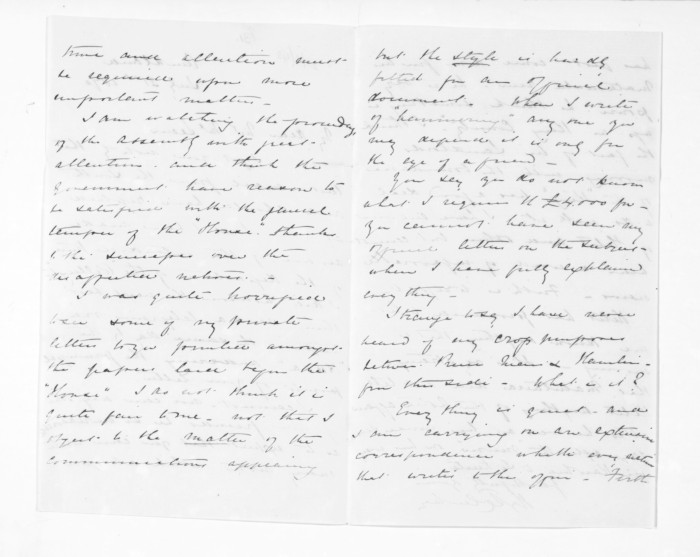 time and attention must
be required upon more
important matters -
I am watching the proceedgs
of the assembly with great
attention - and think the
Government have reason to
be satisfied with the general
temper of the "House" thanks
to the successes over the
disaffected natives. -
I was quite horrified
to see some of my private
letters to you printed amongst
the papers laid before the
"House" I do not think it is
quite fair to me - not that I
object to the matter of the
communications appearing
but the style is hardly
fitted for an official
document. When I write
of "hammering" any one you
may depend it is only for
the eye of a friend -
You say you do not know
what I require the £4000 for -
You cannot have seen my
official letter on the subject
where I have fully explained
everything -
Strange to say I have never
heard of my crop purposes
between &
from this side - What is it?
Every thing is quiet and
I am carrying on an extensive
correspondence with every native
that writes to the office -